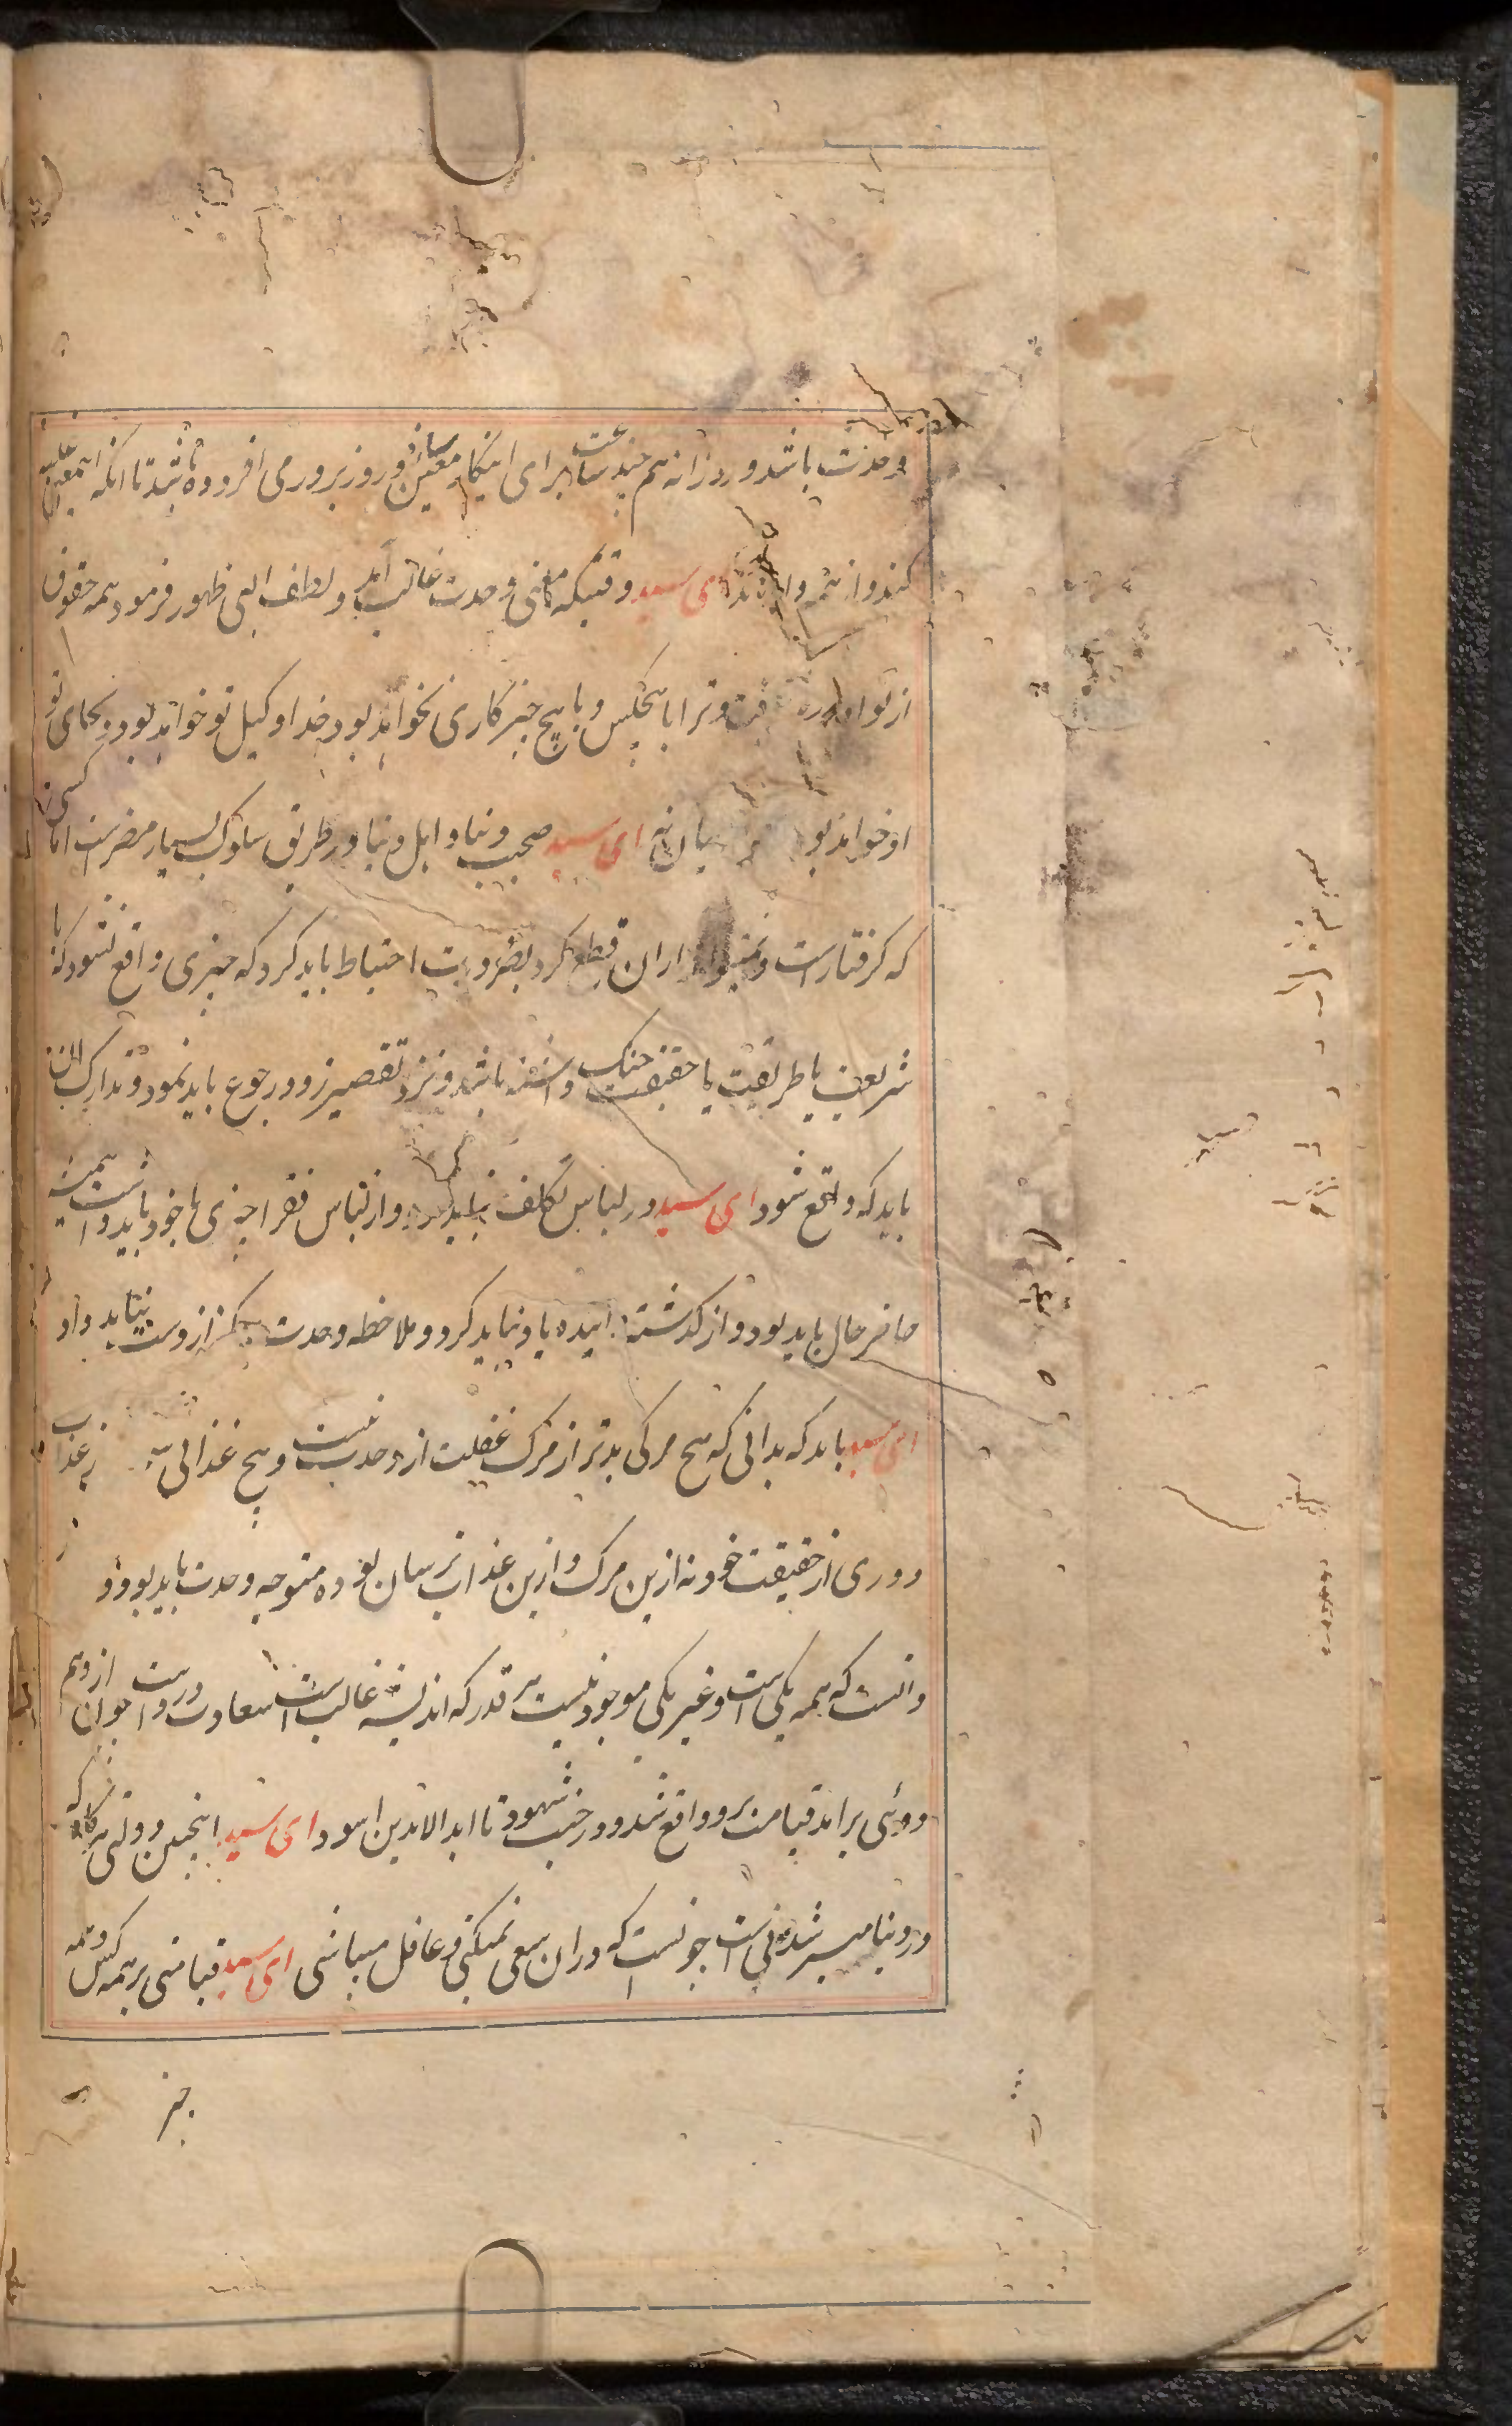 وحدت باشد و روزانه هم چند ساعت برای اینکار معین ساز و روز بروز می افزوده باش تا آنکه این معنی غلبه
کند و از همه وا ای سید وقتیکه معنی وحدت غالب آید و لطف الهی ظهور فرمود همه حقوق
از تو و ترا با هیچکس و با هیچ چیز کاری نخواهد بود خدا وکیل تو خواهد بود و بجای تو
او خواهد بود ای سید صحبت دنیا و اهل دنیا در طریق سلوک بسیار مضر است اما کسی
که گرفتار است و نمیتواند ازان قطع کرد بضرورت احتیاط باید کرد که چیزی واقع نشود که با
شریعت یا طریقت یا حقیقت جنگ داشته باشد و نزد تقصیر زود رجوع باید نمود و تدارک آن
باید که واقع شود ای سید در لباس تکلف نباید و از لباس فقرا چیزی با خود باید داشت همیشه
حاضر حال باید بود و از گذشته آینده یاد نباید کرد و ملاحظه وحدت هرگز از دست نباید داد
ای سید باید که بدانی که هیچ مرگی بدتر از مرگ غفلت از وحدت نیست و هیچ عذابی به ز عذاب
دوری از حقیقت خود نه ازین مرگ و ازین عذاب ترسان بوده متوجه وحدت باید بود و
دانست که همه یکی است و غیر یکی موجود نیست هر قدر که اندیشه غالب است سعادت در است و چون از وهم
دوئی برآید قیامت برو واقع شد و در جنت شهود تا ابد الابدین اسود ای سید اینچنین دولتی هرگاه که
در دنیا میسر شدنی است چونست که دران سعی نمیکنی و غافل میباشی ای سید قیامتی بر همه کس و همه
چیز